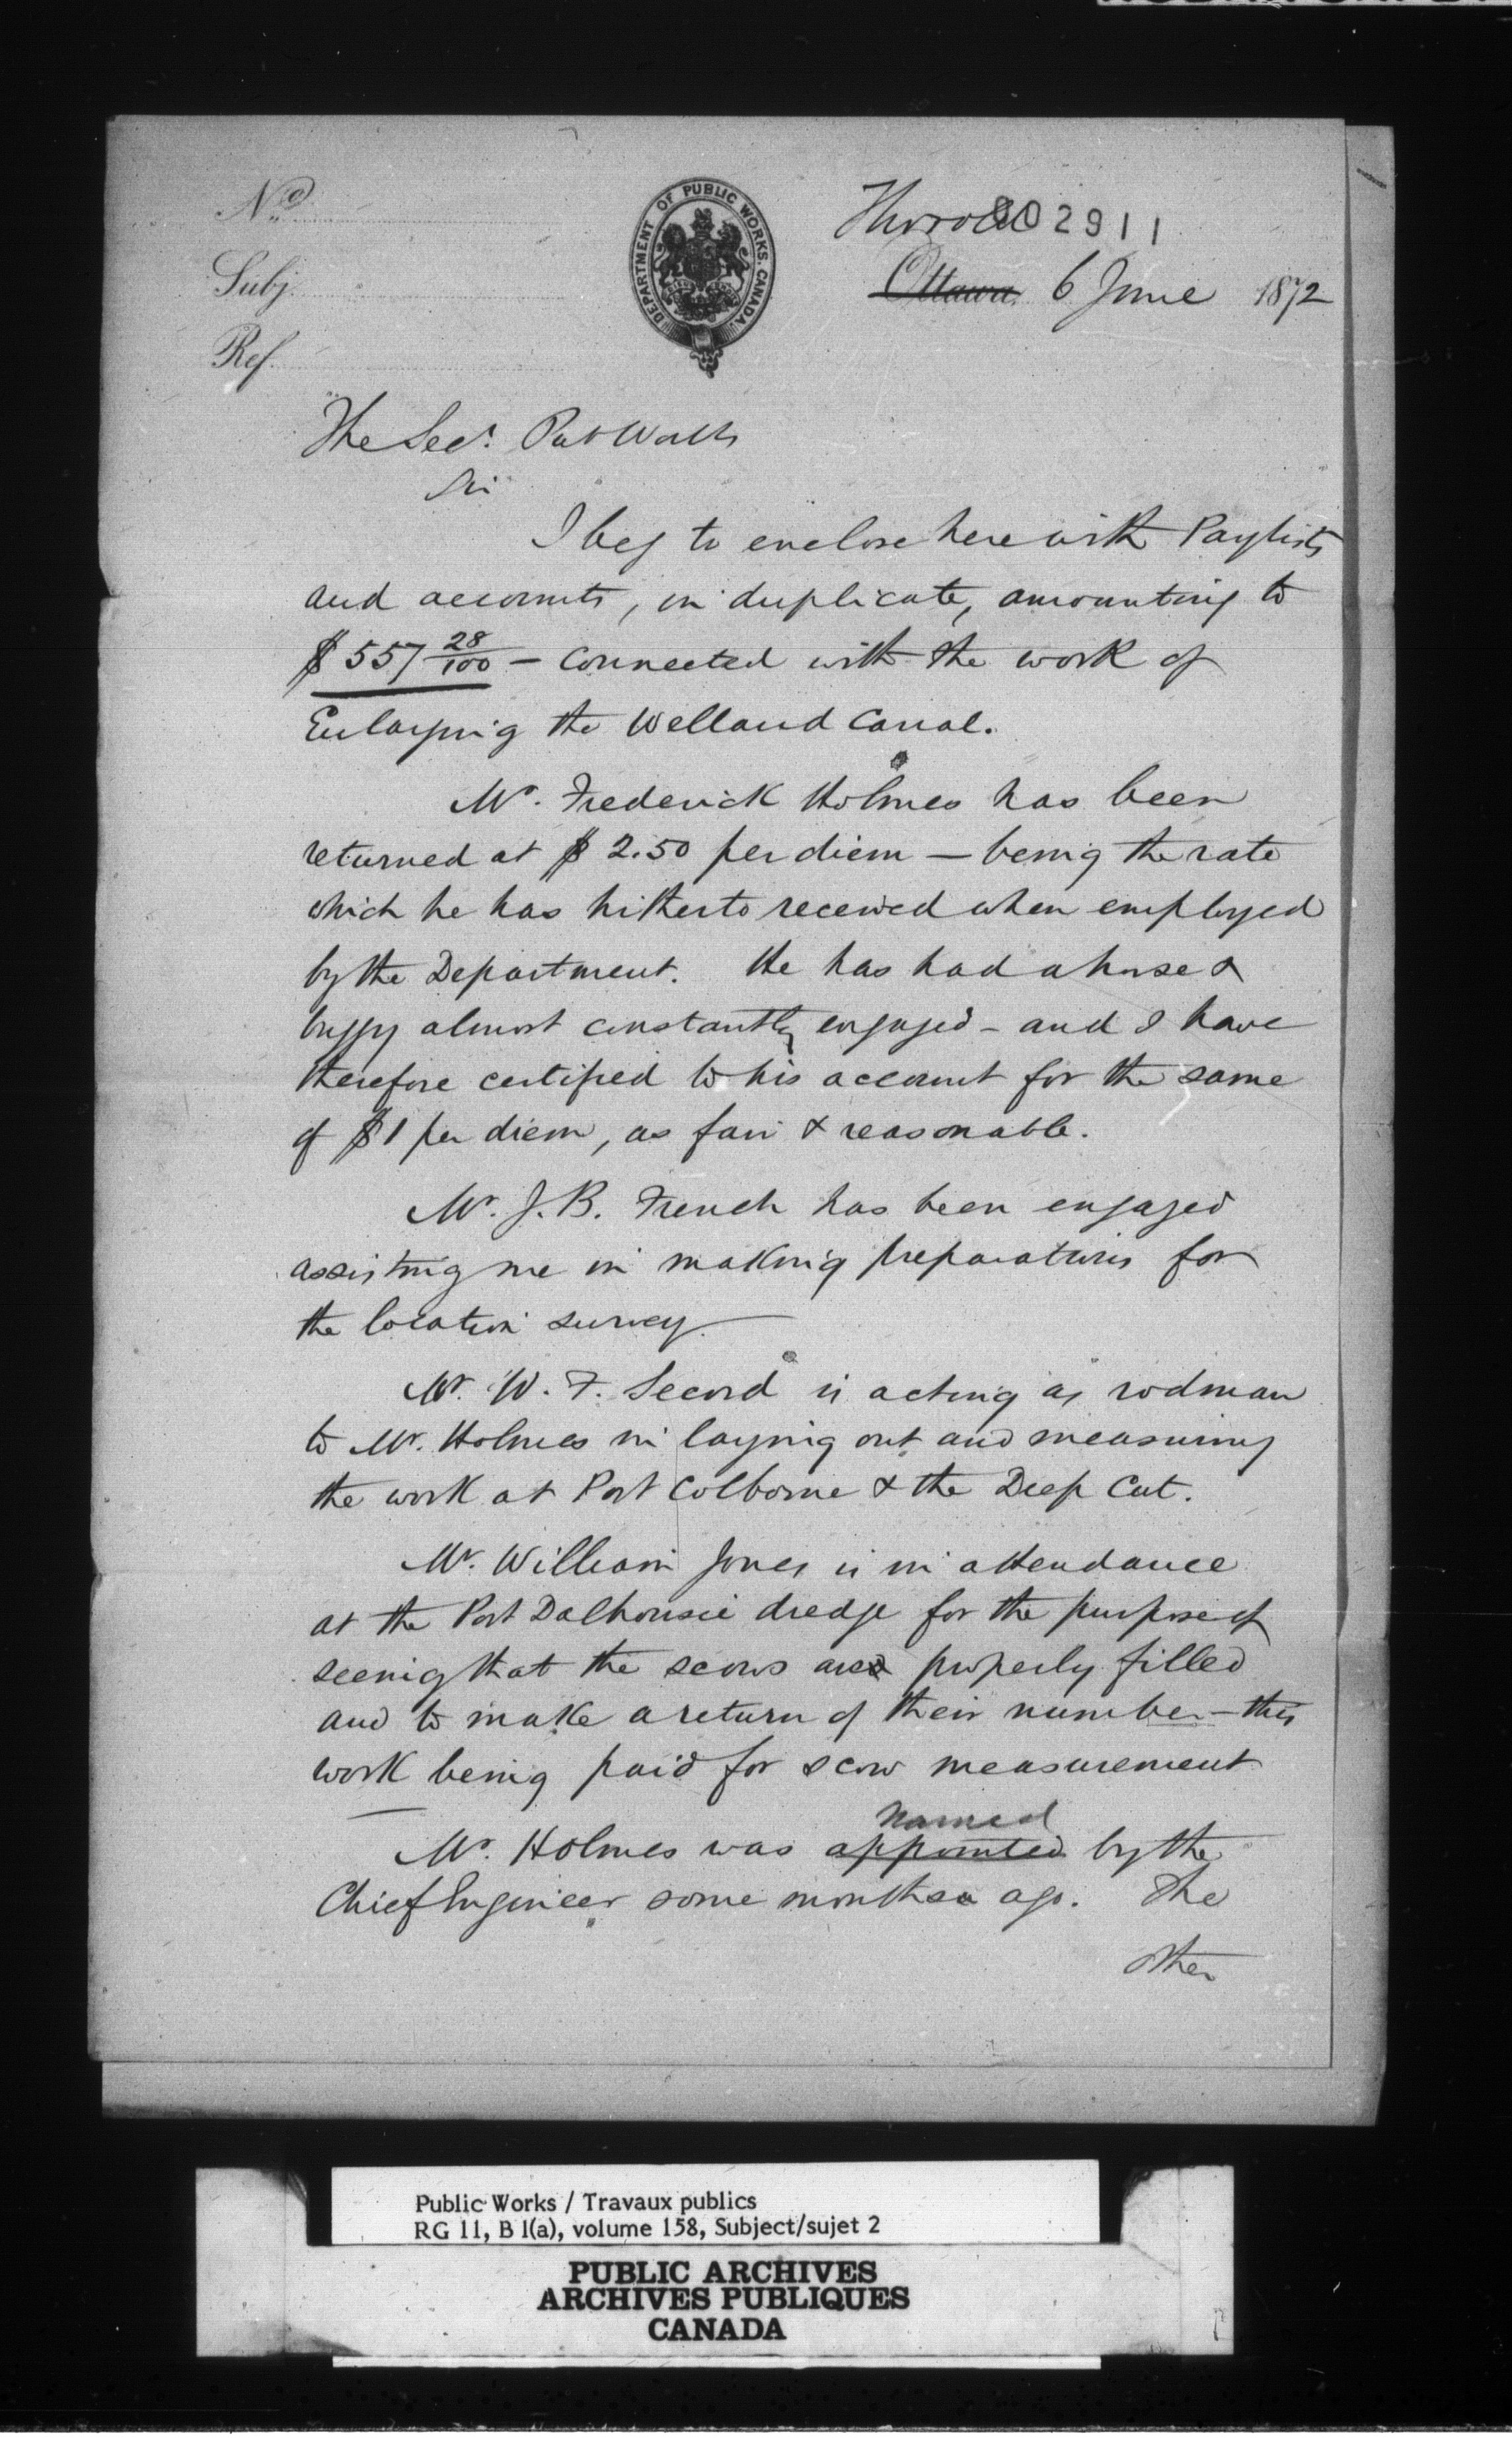 No
Subj.
Ref.
DEPARTMENT OF PUBLIC WORKS. CANADA.
Thorold
802911
Ottawa 6 June 1872
The Secy. Pub Works
Sir
I beg to enclose herewith Paylists
and accounts, in duplicate, amounting to
$557 28/100 - connected with the work of
Enlarging the Welland Canal.
Mr. Frederick Holmes has been
returned at $2.50 per diem — being the rate
which he has hitherto received when employed
by the Department. He has had a horse &
buggy almost constantly engaged - and I have
therefore certified to his account for the same
of $1 per diem, as fair & reasonable.
Mr. J. B. French has been engaged
assisting me in making preparations for
the location survey.
Mr. W. F. Secord is acting as rodman
to Mr. Holmes in laying out and measuring
the work at Port Colborne & the Deep Cut.
Mr. William Jones is in attendance
at the Port Dalhousie dredge for the purpose of
seeing that the scows are properly filled
and to make a return of their number - this
work being paid for scow measurement
named
Mr. Holmes was appointed by the
Chief Engineer some months ago. The
other
Public Works / Travaux publics
RG 11, B 1(a), volume 158, Subject/sujet 2
PUBLIC ARCHIVES
ARCHIVES PUBLIQUES
CANADA